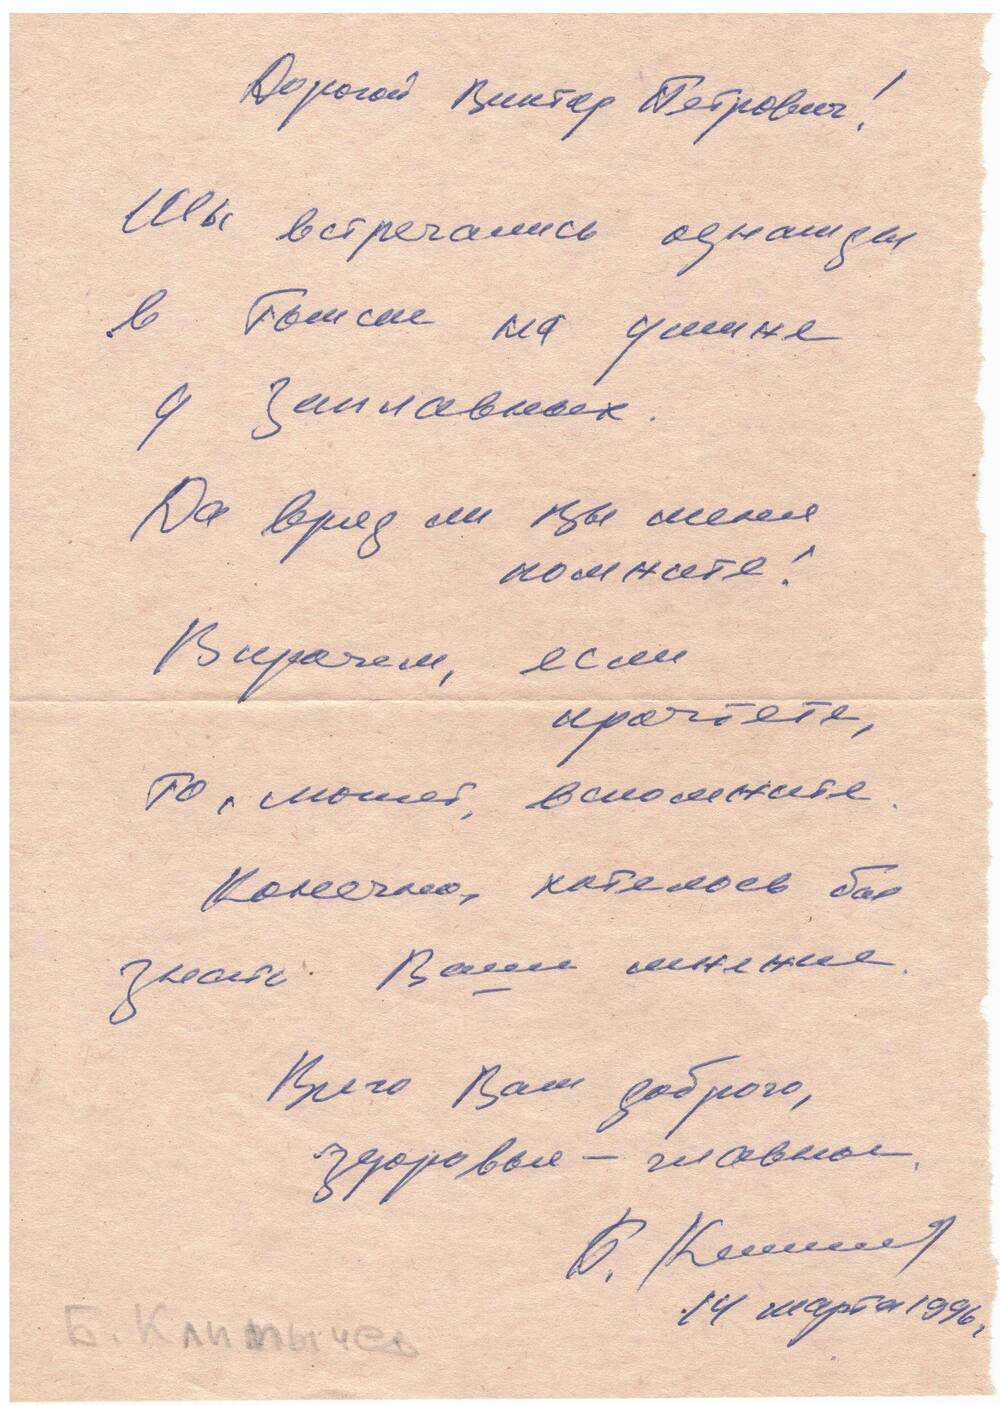 Дорогой Виктор Петрович!
Мы встречались однажды
в Томске на ужине
у Заплавных.
Да вряд ли Вы меня
помните!
Впрочем, если
прочтете,
то, может, вспомните.
Конечно, хотелось бы
знать Ваше мнение.
Всего Вам доброго,
здоровье – главное.
Б. Климычев
14 марта 1996,
Б. Климычев